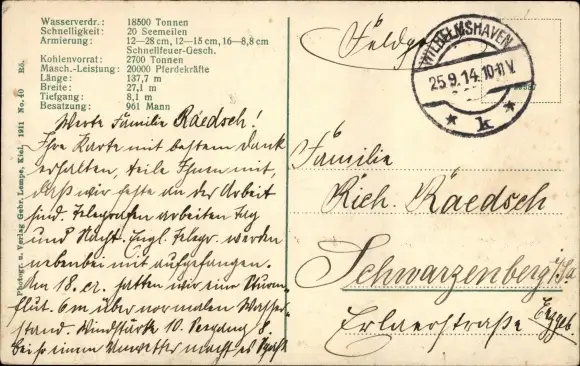 Wasserverdr.: 18500 Tonnen
Schnelligkeit: 20 Seemeilen
Armierung: 12—28 cm, 12—15 cm, 16—8,8 cm
Schnellfeuer-Gesch.
Kohlenvorrat: 2700 Tonnen
Masch.-Leistung: 20000 Pferdekräfte
Länge: 137,7 m
Breite: 27,1 m
Tiefgang: 8,1 m
Besatzung: 961 Mann
Photogr. u. Verlag Gebr. Lempe, Kiel. 1911 No. 40 Rö.
Werte Familie Räedsch!
Ihre Karte mit bestem Dank
erhalten, teile Ihnen mit,
daß wir feste an der Arbeit
sind. Telegrafen arbeiten Tag
und Nacht. Engl. Telegr. werden
nebenbei mit aufgefangen.
Am 18. cr. hatten wir eine Sturm
flut. 6 m über normalen Wasser
stand. Windstärke 10. Seegang 8.
bei so einem Unwetter macht es Spaß
WILHELMSHAVEN
25.9.14.10-11V.
* k *
Familie
Rich. Räedsch
Schwarzenberg i/Sa
Erlaerstraße
Erzgeb.